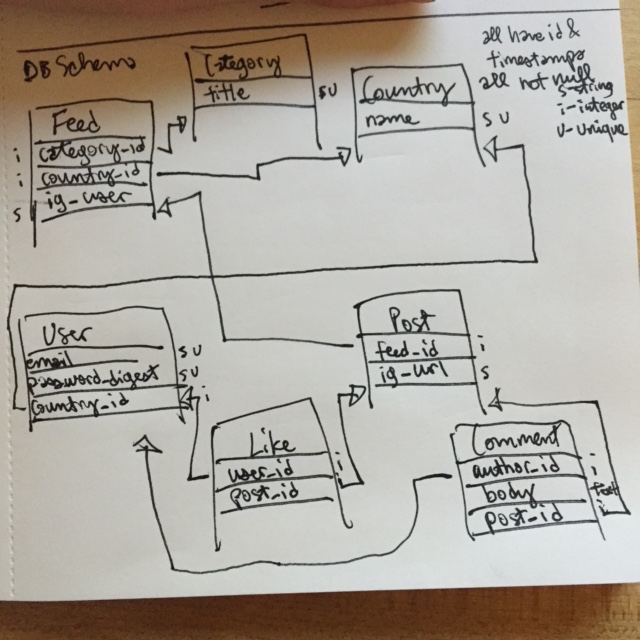 DB Schema
all have id &
timestamps
all not null
s-string
i-integer
u-unique
Category
title su
Country
name su
Feed
i category_id
i country_id
s ig_user
User
email su
password_digest su
country_id i
Post
feed_id i
ig_url s
Like
user_id i
post_id i
Comment
author_id i
body text
post_id i